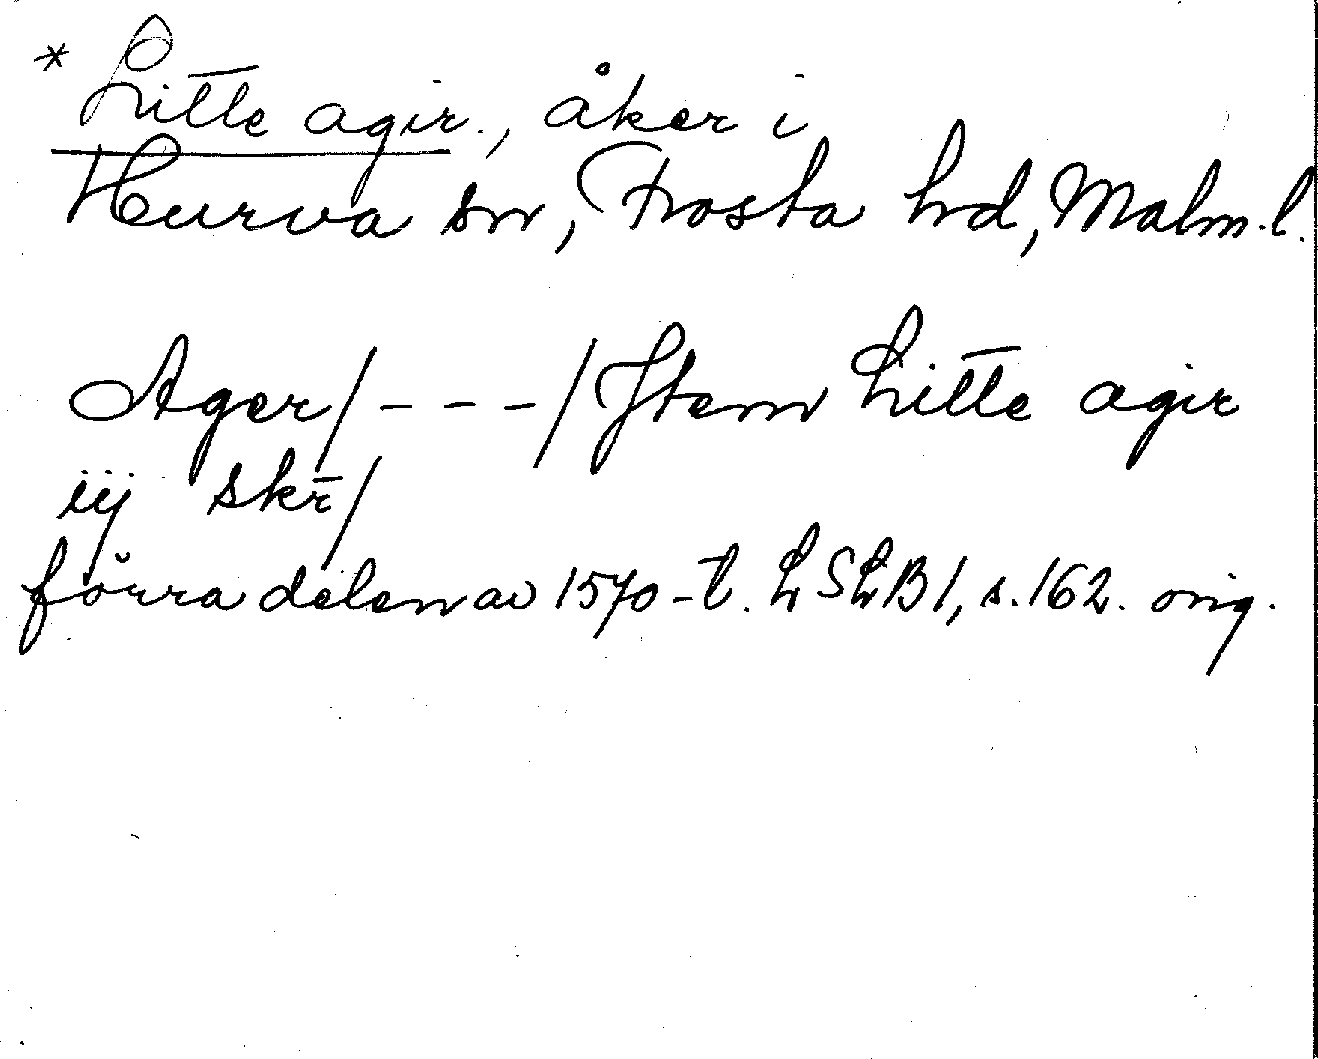 * Litle agir., åker i
Hurva sn, Frosta hd, Malm.l.
Ager/---/Item Litle agir
iij skr̄/
förra delen av 1570-t. LSLB1, s.162. orig.